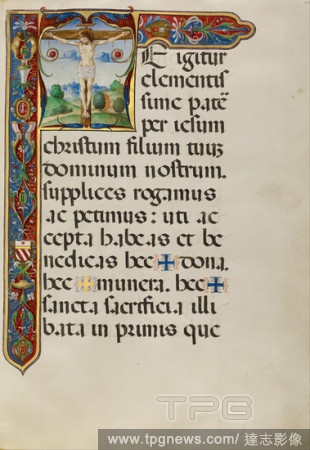 TE igitur
clementis
sime patē
per iesum
christum filium tuuz
dominum nostrum.
supplices rogamus
ac petimus: uti ac
cepta habeas et be
nedicas hec ✠ dona.
hec ✠ munera. hec ✠
sancta sacrificia illi
bata in primis que
TPG
www.tpgnews.com/ 達志影像